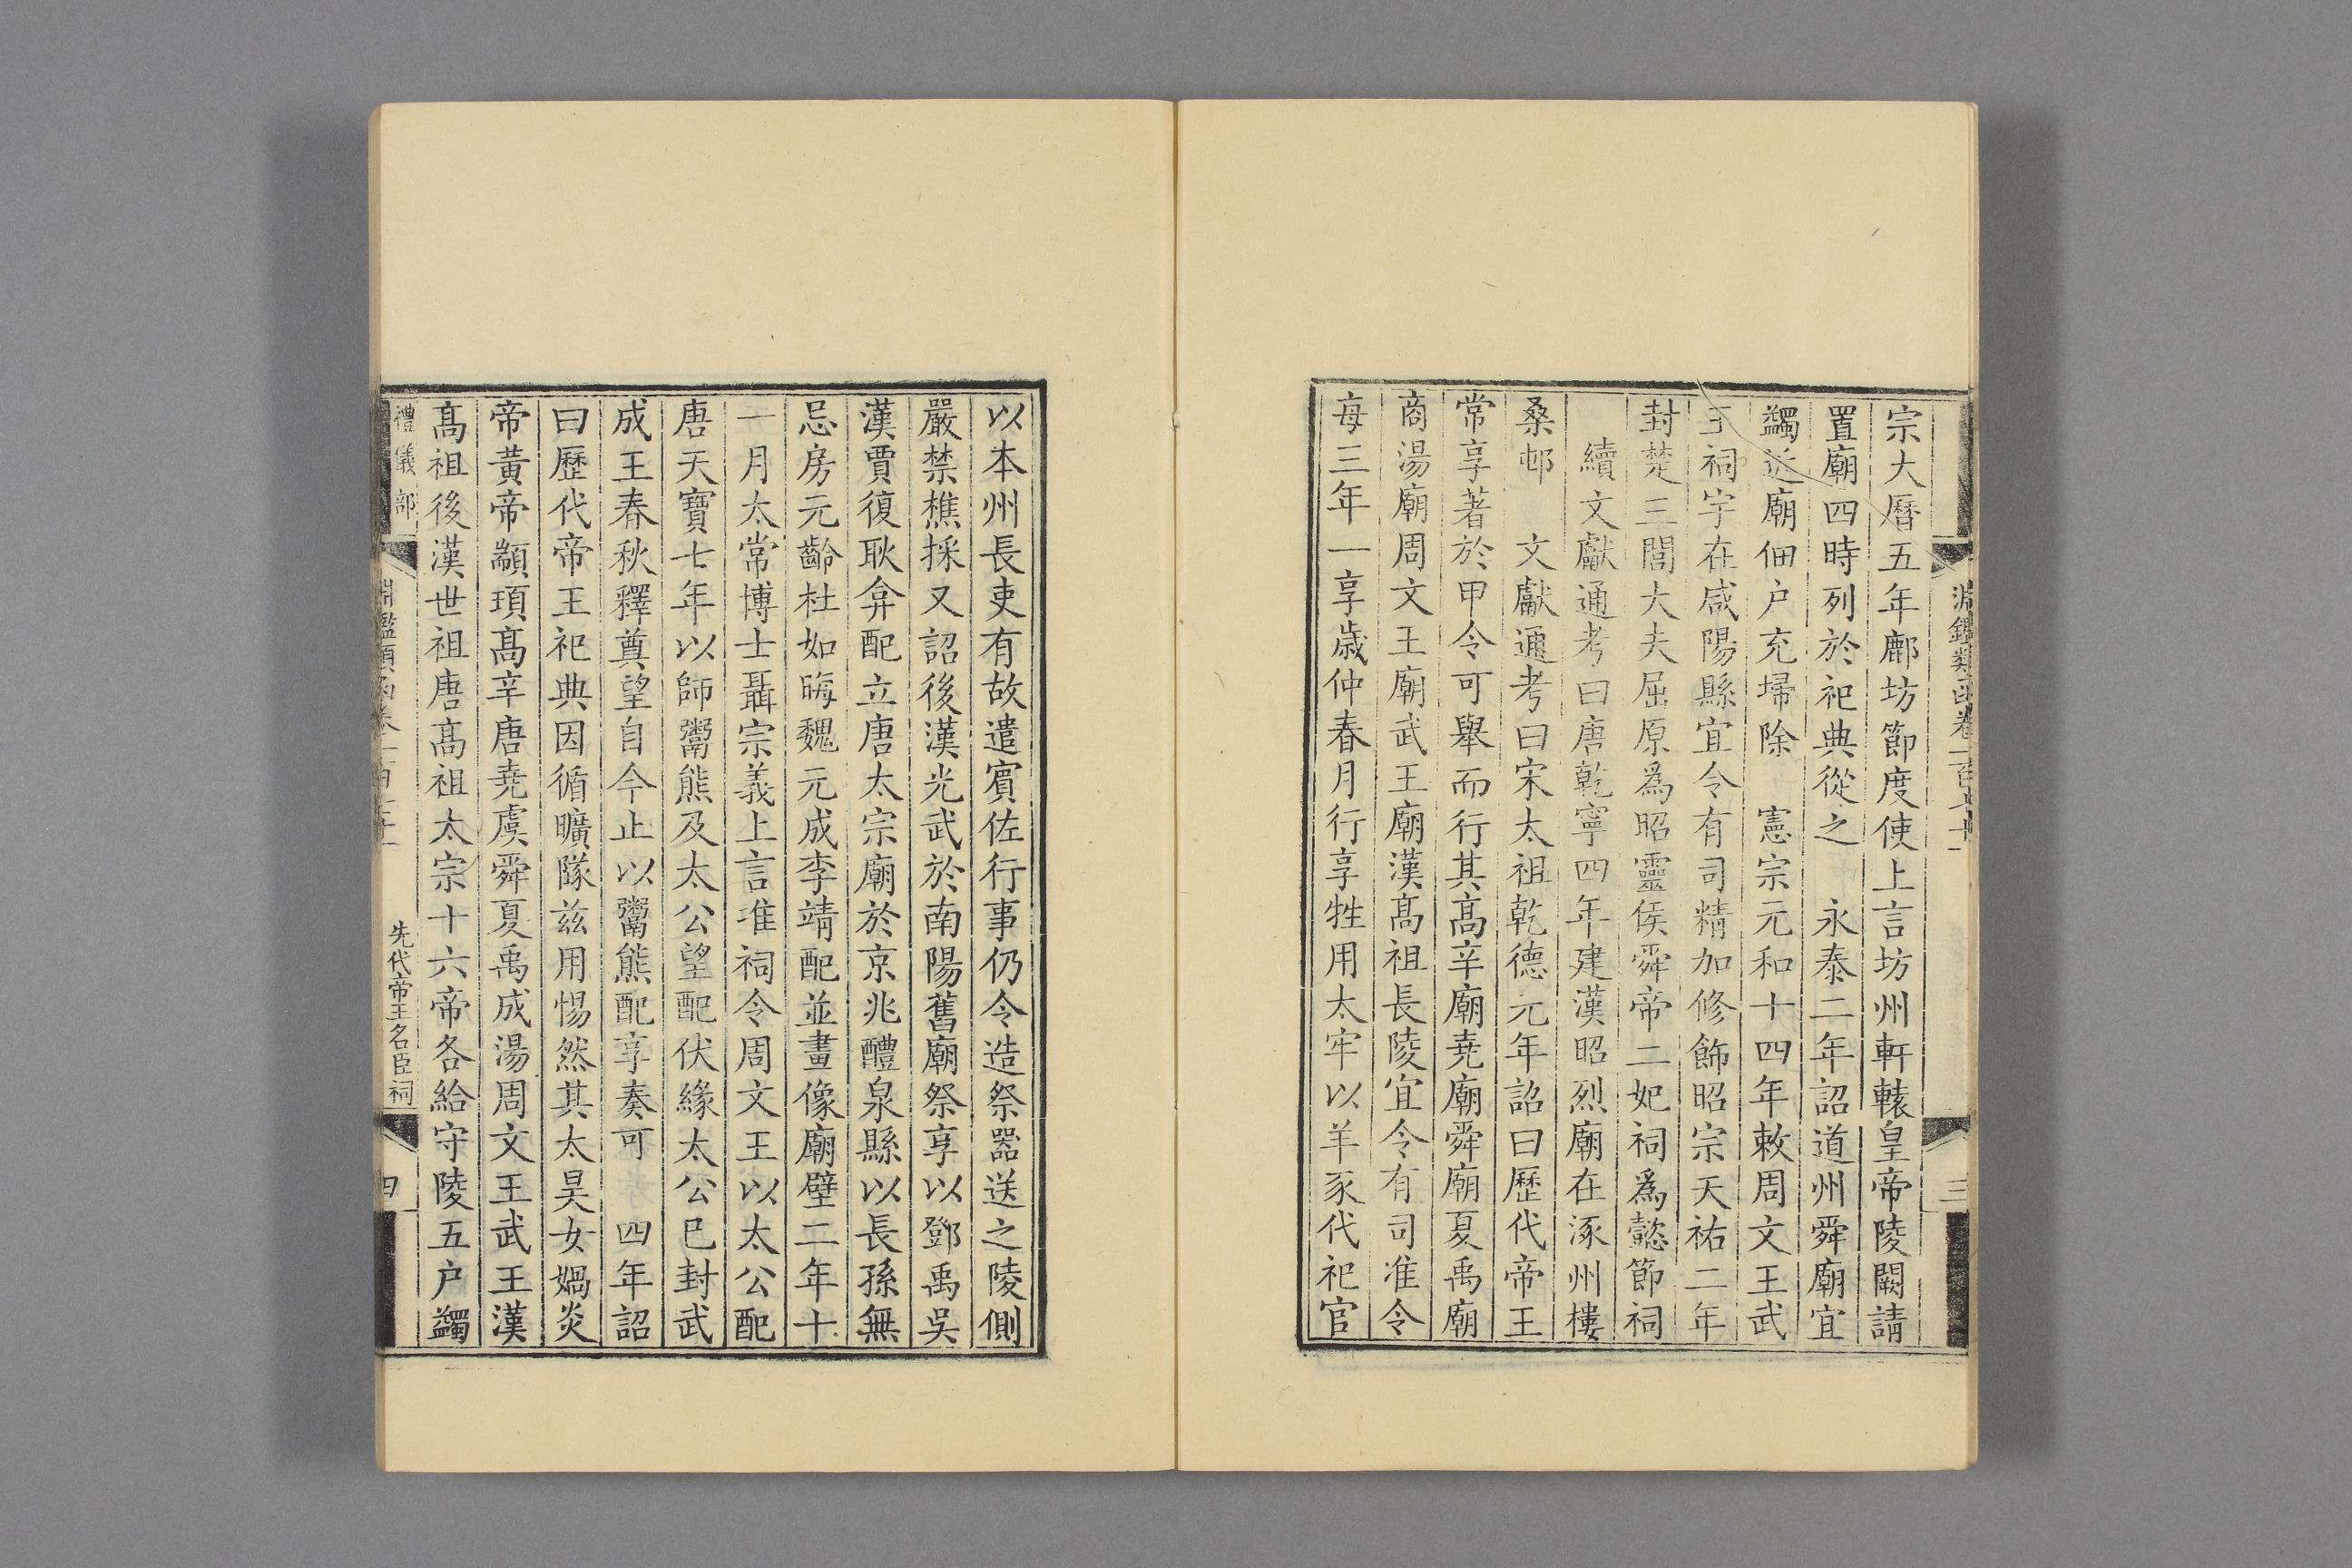 宗大曆五年鄜坊節度使上言坊州軒轅皇帝陵闕請
置廟四時列於祀典從之　永泰二年詔道州舜廟宜
蠲近廟佃户充埽除　憲宗元和十四年敕周文王武
王祠宇在咸陽縣宜令有司精加修飾昭宗天祐二年
封楚三閭大夫屈原爲昭靈侯舜帝二妃祠爲懿節祠
續文獻通考曰唐乾寧四年建漢昭烈廟在涿州樓
桑邨　文獻通考曰宋太祖乾德元年詔曰歷代帝王
常享著於甲令可舉而行其髙辛廟堯廟舜廟夏禹廟
商湯廟周文王廟武王廟漢髙祖長陵宜令有司准令
每三年一享歳仲春月行享牲用太牢以羊豕代祀官
以本州長吏有故遣賓佐行事仍令造祭器送之陵側
嚴禁樵採又詔後漢光武於南陽舊廟祭享以鄧禹吳
漢賈復耿弇配立唐太宗廟於京兆醴泉縣以長孫無
忌房元齡杜如晦魏元成李靖配並畫像廟壁二年十
一月太常博士聶宗義上言准祠令周文王以太公配
唐天寶七年以師鬻熊及太公望配伏緣太公已封武
成王春秋釋奠望自今止以鬻熊配享奏可　四年詔
曰歷代帝王祀典因循曠墜兹用惕然其太昊女媧炎
帝黄帝顓頊髙辛唐堯虞舜夏禹成湯周文王武王漢
髙祖後漢世祖唐髙祖太宗十六帝各給守陵五户蠲
淵鑑類函卷一百六十一
三
禮儀部
先代帝王名臣祠
四